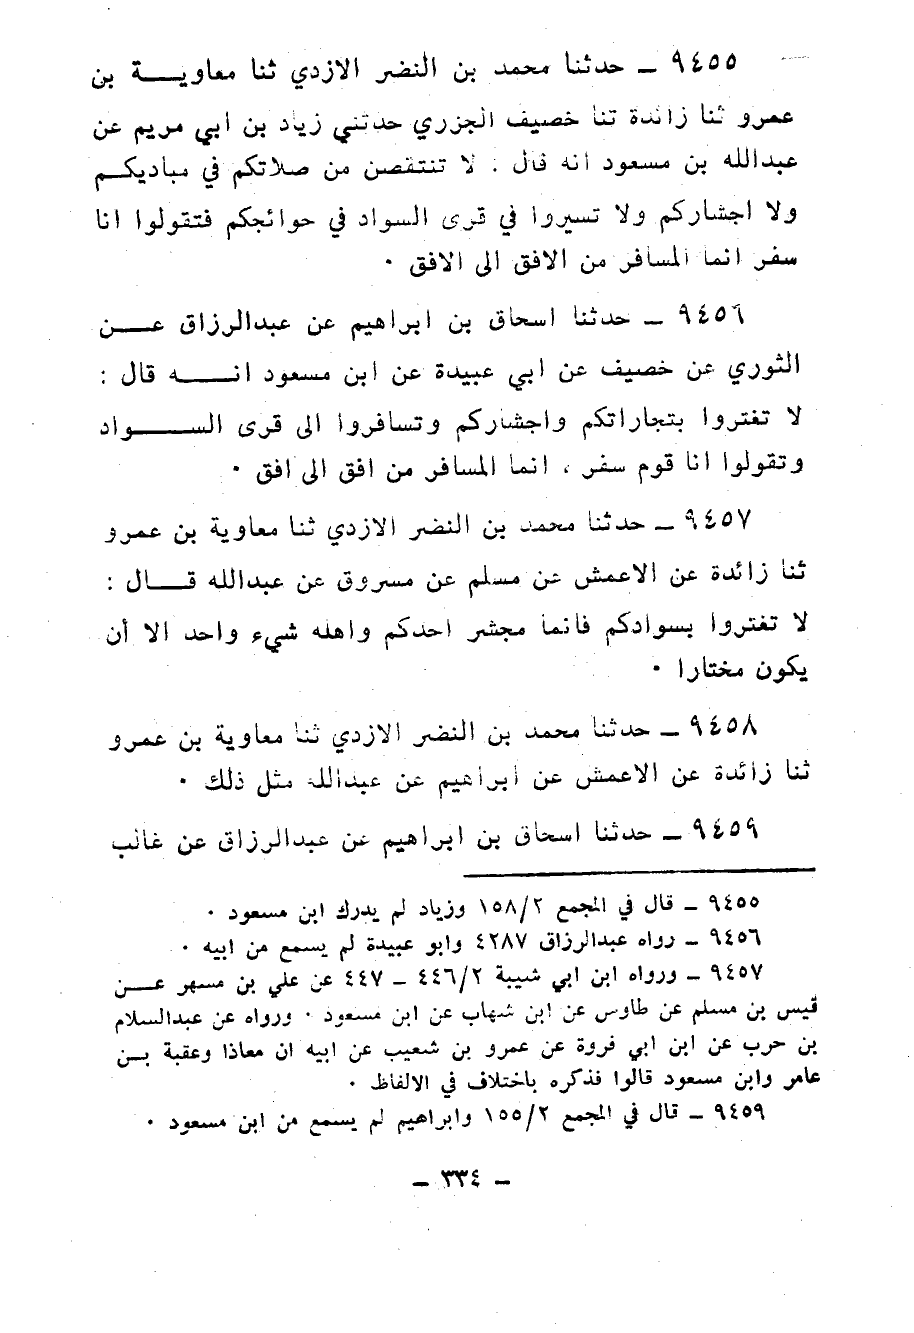 ٩٤٥٥ ـ حدثنا محمد بن النضر الازدي ثنا معاويــة بن
عمرو ثنا زائدة ثنا خصيف الجزري حدثني زياد بن ابي مريم عن
عبدالله بن مسعود انه قال . لا تنتقصن من صلاتكم في مباديكم
ولا اجشاركم ولا تسيروا في قرى السواد في حوائجكم فتقولوا انا
سفر انما المسافر من الافق الى الافق ٠
٩٤٥٦ ـ حدثنا اسحاق بن ابراهيم عن عبدالرزاق عــن
الثوري عن خصيف عن ابي عبيدة عن ابن مسعود انــه قال :
لا تغتروا بتجاراتكم واجشاركم وتسافروا الى قرى الســواد
وتقولوا انا قوم سفر ، انما المسافر من افق الى افق ٠
٩٤٥٧ ـ حدثنا محمد بن النضر الازدي ثنا معاوية بن عمرو
ثنا زائدة عن الاعمش عن مسلم عن مسروق عن عبدالله قــال :
لا تغتروا بسوادكم فانما مجشر احدكم واهله شيء واحد الا أن
يكون مختارا ٠
٩٤٥٨ ـ حدثنا محمد بن النضر الازدي ثنا معاوية بن عمرو
ثنا زائدة عن الاعمش عن ابراهيم عن عبدالله مثل ذلك ٠
٩٤٥٩ ـ حدثنا اسحاق بن ابراهيم عن عبدالرزاق عن غالب
٩٤٥٥ ـ قال في المجمع ١٥٨/٢ وزياد لم يدرك ابن مسعود ٠
٩٤٥٦ ـ رواه عبدالرزاق ٤٢٨٧ وابو عبيدة لم يسمع من ابيه ٠
٩٤٥٧ ـ ورواه ابن ابي شيبة ٤٤٦/٢ ـ ٤٤٧ عن علي بن مسهر عــن
قيس بن مسلم عن طاوس عن ابن شهاب عن ابن مسعود ٠ ورواه عن عبدالسلام
بن حرب عن ابن ابي فروة عن عمرو بن شعيب عن ابيه ان معاذا وعقبة بــن
عامر وابن مسعود قالوا فذكره باختلاف في الالفاظ ٠
٩٤٥٩ ـ قال في المجمع ١٥٥/٢ وابراهيم لم يسمع من ابن مسعود ٠
ـ ٣٣٤ ـ